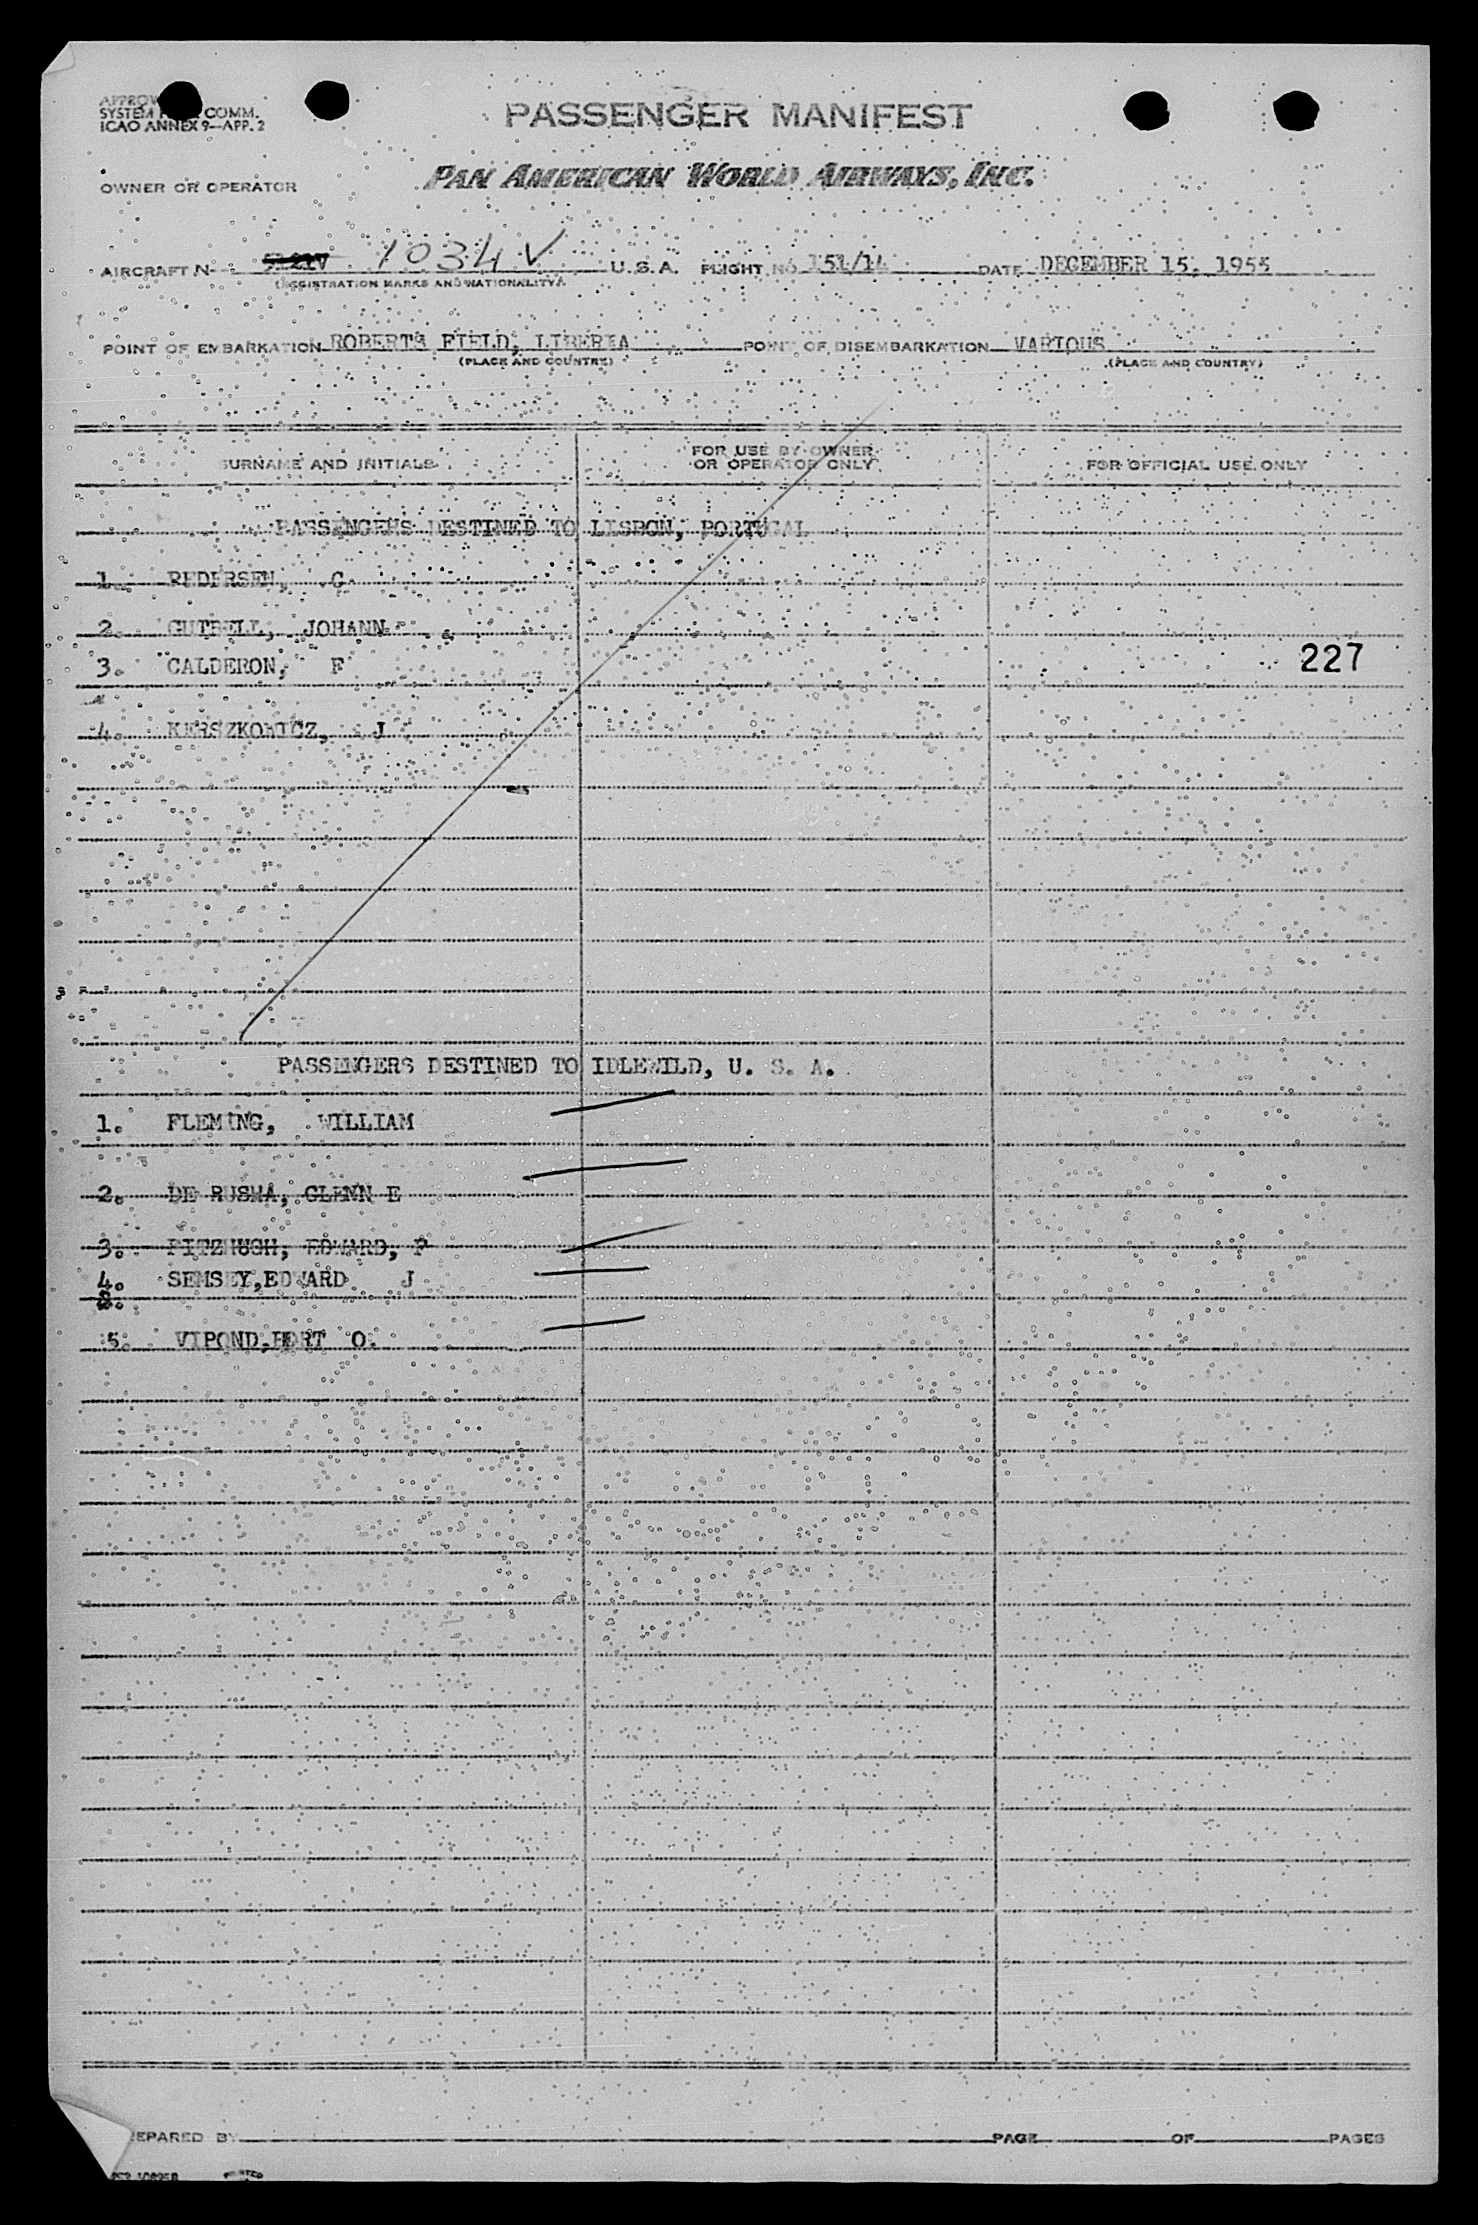 SYSTEM COMM.
ICAO ANNEX 9—APP. 2
PASSENGER MANIFEST
OWNER OR OPERATOR
PAN AMERICAN WORLD AIRWAYS, INC.
AIRCRAFT N- 1034V U.S.A. FLIGHT NO. 151/14 DATE DECEMBER 15, 1955
(REGISTRATION MARKS AND NATIONALITY)
POINT OF EMBARKATION ROBERTS FIELD, LIBERIA POINT OF DISEMBARKATION VARIOUS
(PLACE AND COUNTRY) (PLACE AND COUNTRY)
SURNAME AND INITIALS FOR USE BY OWNER OR OPERATOR ONLY FOR OFFICIAL USE ONLY
PASSENGERS DESTINED TO LISBON, PORTUGAL
1. PEDERSEN, G
2. GUTBELL, JOHANN
3. CALDERON, F
227
4. KERSZKOWICZ, J
PASSENGERS DESTINED TO IDLEWILD, U. S. A.
1. FLEMING, WILLIAM
2. DE RUSMA, GLENN E
3. FITZHUGH, EDWARD, P
4. SEMSEY,EDWARD J
5. VIPOND,HERT O.
PREPARED BY PAGE OF PAGES